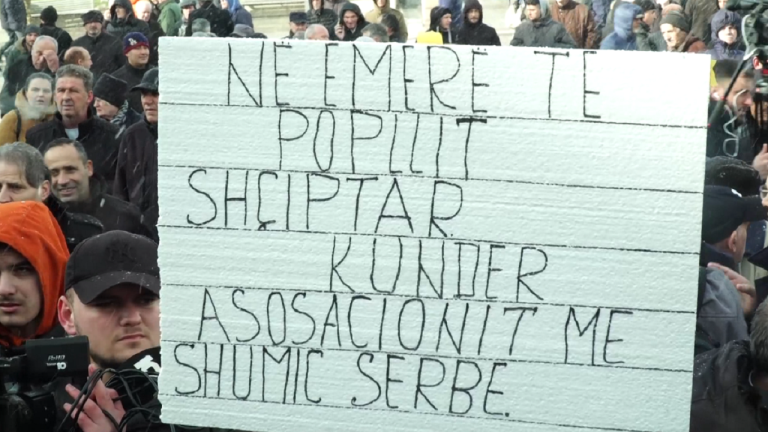 NË EMERË TË
POPULIT
SHÇIPTAR
KUNDER
ASOSACIONIT ME
SHUMIC SERBE.